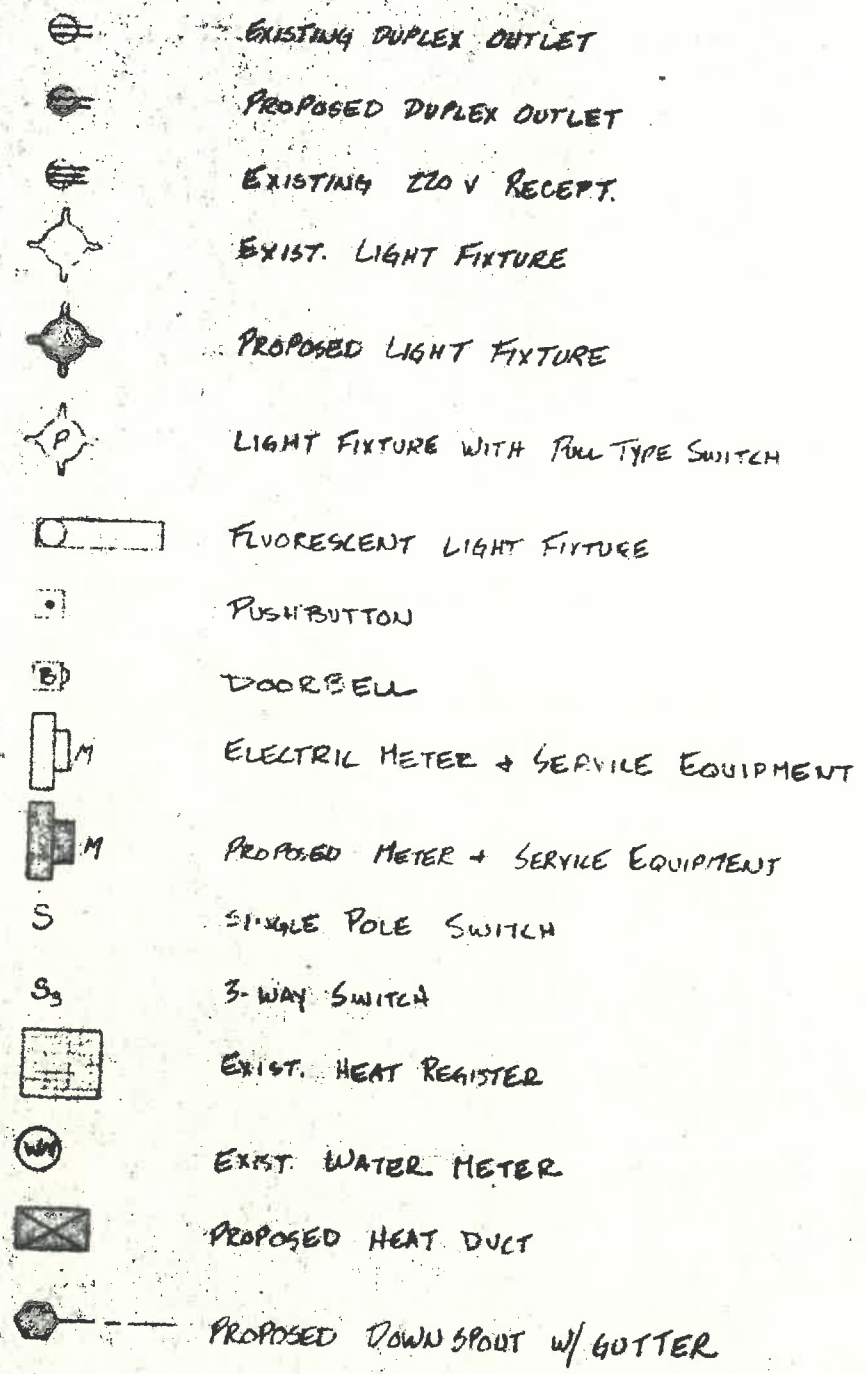 EXISTING DUPLEX OUTLET
PROPOSED DUPLEX OUTLET
EXISTING 220 V RECEPT.
EXIST. LIGHT FIXTURE
PROPOSED LIGHT FIXTURE
P LIGHT FIXTURE WITH PULL TYPE SWITCH
FLUORESCENT LIGHT FIXTURE
PUSHBUTTON
B DOORBELL
M ELECTRIC METER + SERVICE EQUIPMENT
M PROPOSED METER + SERVICE EQUIPMENT
S SINGLE POLE SWITCH
S3 3-WAY SWITCH
EXIST. HEAT REGISTER
WM EXIST. WATER METER
PROPOSED HEAT DUCT
PROPOSED DOWNSPOUT W/ GUTTER